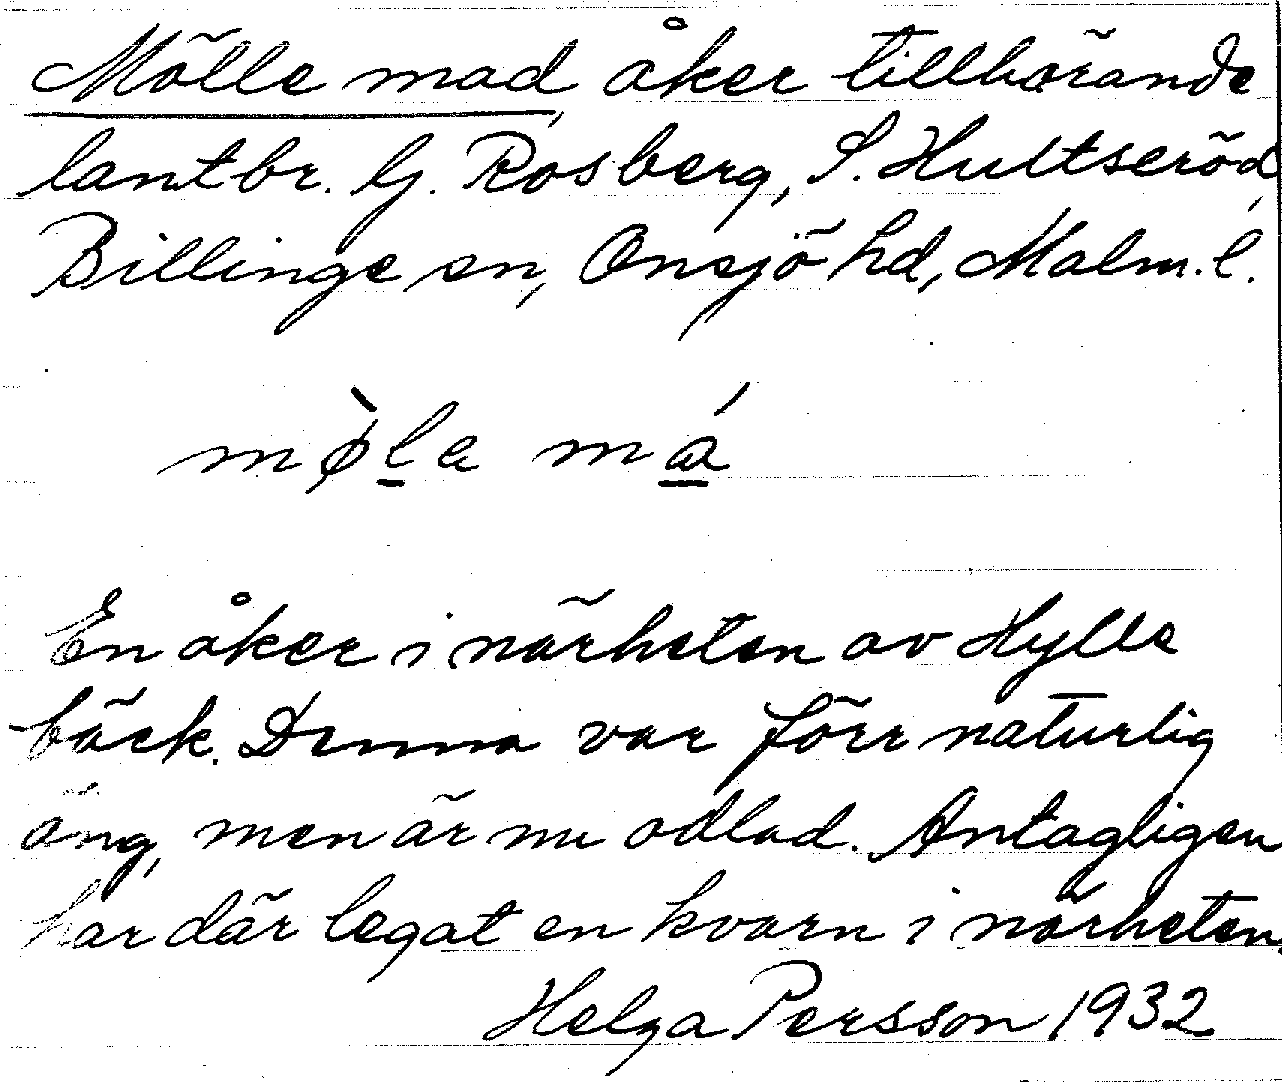 Mölle mad, åker tillhörande
lantbr. G. Rosberg, S. Hultseröd,
Billinge sn, Onsjö hd, Malm. l.
mø̀la má
En åker i närheten av Hylle
bäck. Denna var förr naturlig
äng, men är nu odlad. Antagligen
har där legat en kvarn i närheten.
Helga Persson 1932